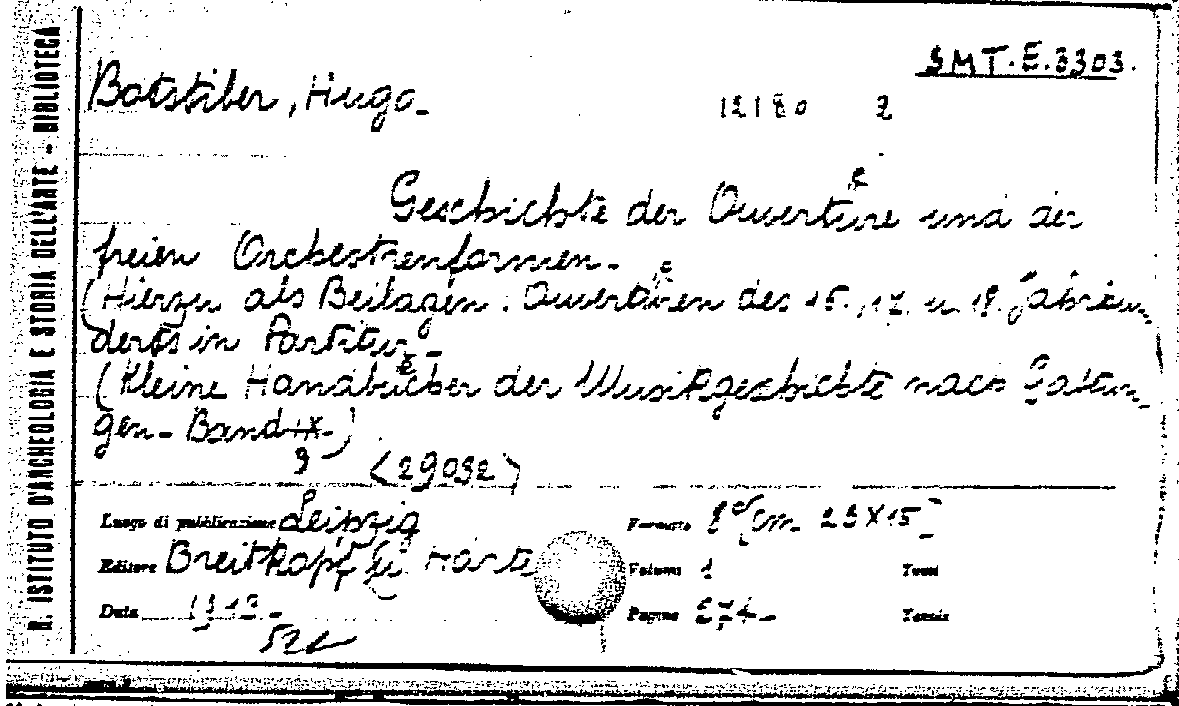 SMT.E.3303.
Botstiber, Hugo-
12180 2
Geschichte der Ouvertüre und der
freien Orchestrenformen-
(Hierzu als Beilagen: Ouvertüren des 15., 17. u. 18. Jahrhun-
derts in Partitur-
(Kleine Handbücher der Musikgeschichte nach Gattun-
gen- Band IX-)
9
(29032)
Luogo di pubblicazione Leipzig
Formato 8° cm 23X15
Editore Breitkopf & Härte
Volumi 1
Tomi
Data 1913-
Pagine 274-
Tavole
R. ISTITUTO D'ARCHEOLOGIA E STORIA DELL'ARTE - BIBLIOTECA